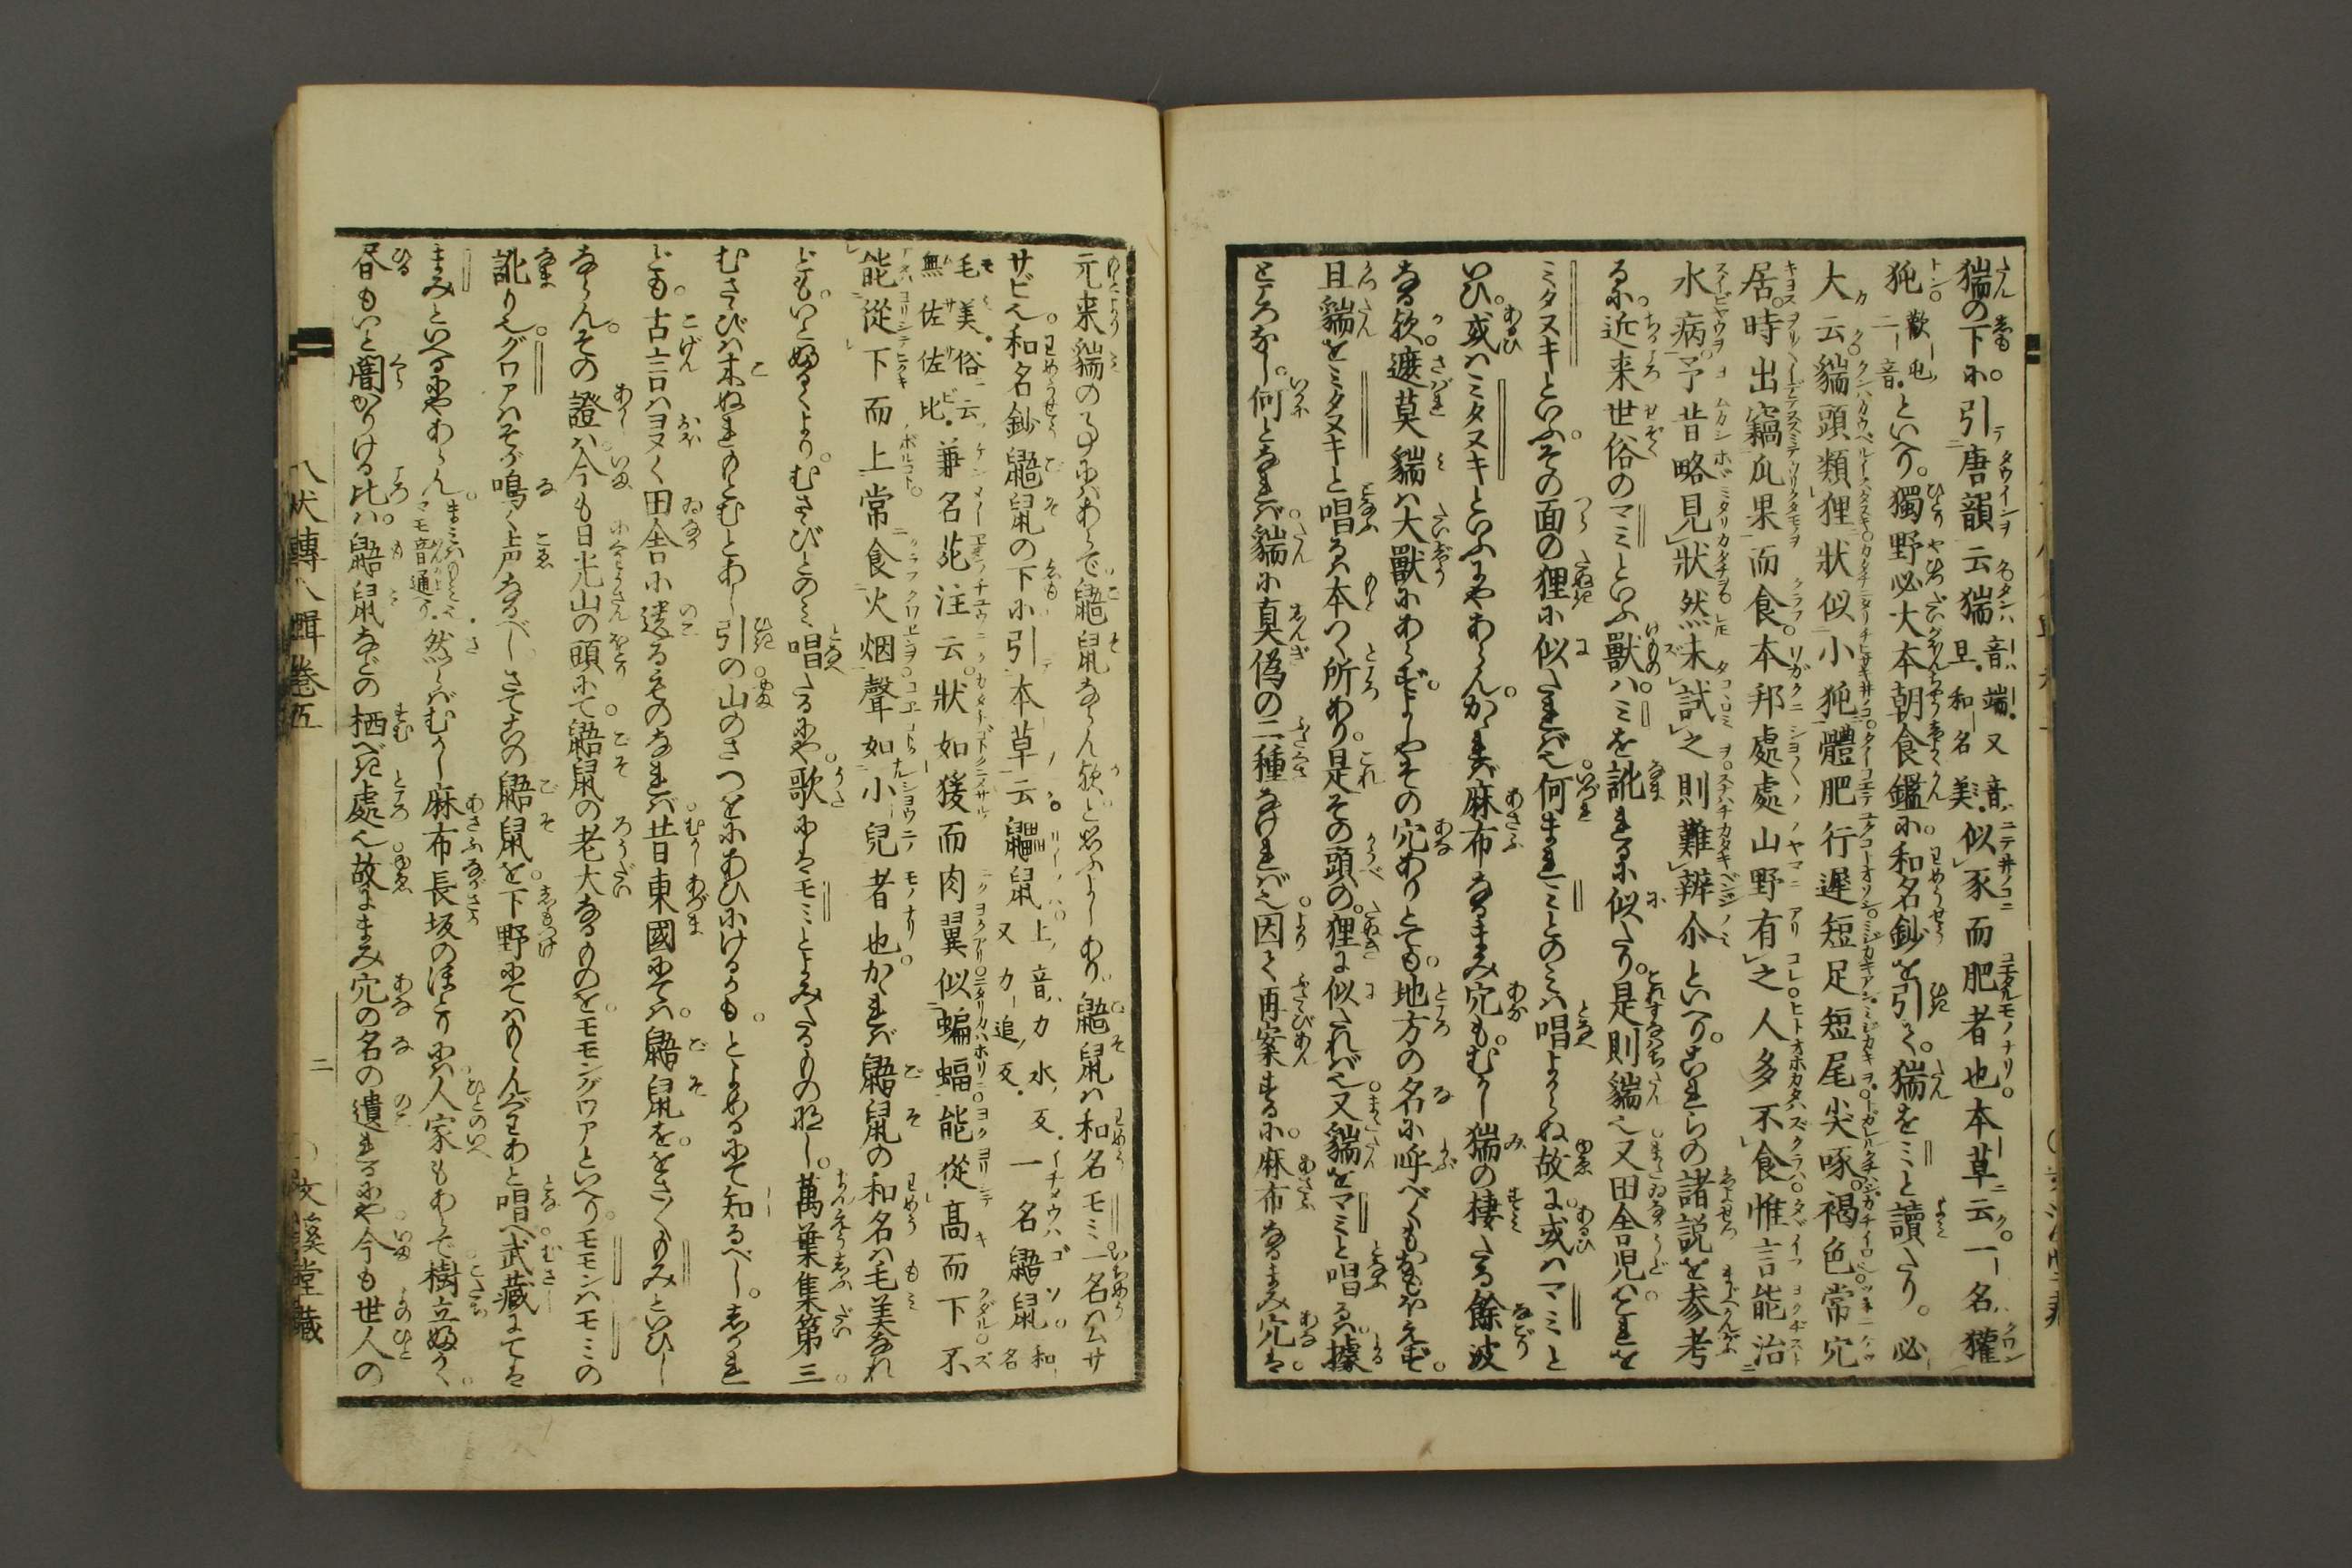 猯の下に。引唐韻云猯音端。又音旦。和名美。似豕而肥者也本草云一名獾
㹠歡屯二音。といへり。獨野必大本朝食鑑に。和名鈔を引て。猯をミと讀たり。必
大云貒頭類狸狀似小㹠體肥行遲短足短尾尖啄褐色常穴
居。時出竊瓜果而食。本邦處處山野有之人多不食惟言能治
水病予昔略見狀然未試之則難辨尒といへり。これらの諸説を参考
るに。近来世俗のマミといふ獸ハ。ミを訛れるに似たり。是則貒也又田舎児ハ。これを
ミタヌキといふ。その面の狸に似たれば也。何まれミとのミハ唱よからぬ故に。或ハマミと
いひ。或ハミタヌキといふにやあらん。かゝれバ麻布なるまみ穴も。むかし猯の棲たる餘波
なる歟。遮莫貒ハ大獸にあらず。よしやその穴ありとも。地方の名に呼べくもおもほえず。
且貒をミタヌキと唱るハ本つく所あり。是その頭の。狸に似たれバ也。又貒をマミと唱るハ。據
ところなし。何となれバ貒に真偽の二種なけれバ也。因て再案ずるに。麻布なるまみ穴は。
元来貒の事にハあらで鼯鼠ならん歟と思ふよしあり。鼯鼠ハ和名モミ。一名ハムサ
サビ也。和名鈔鼯鼠の下に。引本草云鼺鼠上音力水反。又力追反。一名鼯鼠和名
毛美。俗云無佐佐比。兼名苑注云。狀如猨而肉翼似蝙蝠能從高而下不
能從下而上常食火烟聲如小兒者也。かゝれバ鼯鼠の和名ハ毛美なれ
ども。いと ふるくより。むさゝびとのミ唱たるにや。歌にはモミとよみたるもの那し。萬葉集第三。
むさゝびハ木ぬれもとむとあし引の山のさつをにあひにけるかも。とよめるにて知るべし。しかれ
ども。古言ハヨヌく田舎に遺るものなれバ。昔東國にてハ。鼯鼠を。をさ〳〵もみといひし
ならん。その證ハ。今も日光山の頭にて。鼯鼠の老大なるものを。モモングワアといへり。モモンハモミの
訛り也。グワアハそが鳴く声なるべし。さてこの鼯鼠を。下野にてハもゝんぐわあと唱へ。武藏にては
まみといへるにやあらん。まミハもミ也マモ音通ず。然らバむかし麻布長坂のほとりにハ。人家もあらで樹立ふかく。
昼もいと闇かりける比ハ。鼯鼠などの栖べき處也。故にまみ穴の名の遺れるにや。今も世人の
八犬傳八輯卷五
二
文溪堂藏